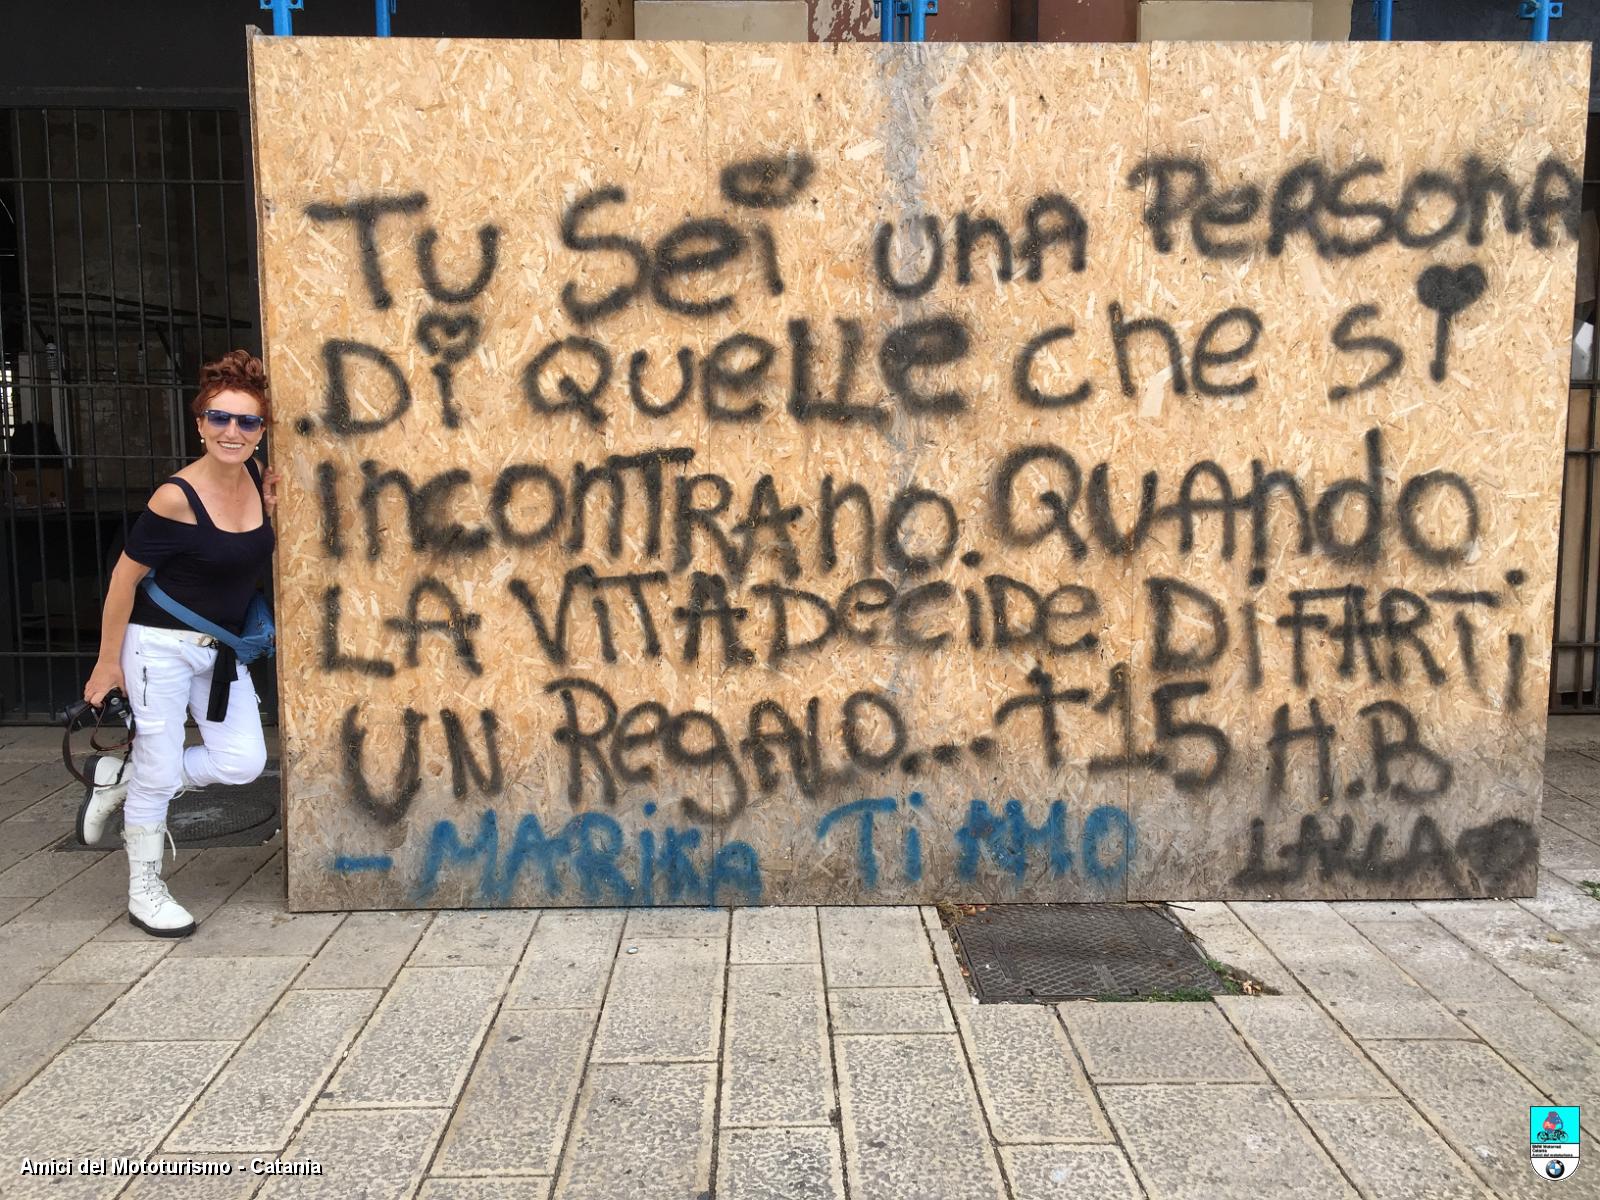 Tu Sei una PERSONA
.Di QUELLE che Si
INCONTRANO. QUANDO
LA VITA DECIDE Di FARTi
UN REGALO... +15 H.B
- MARiKA Ti AMO
LALLA
Amici del Mototurismo - Catania
BMW Motorrad
Catania
Amici del mototurismo